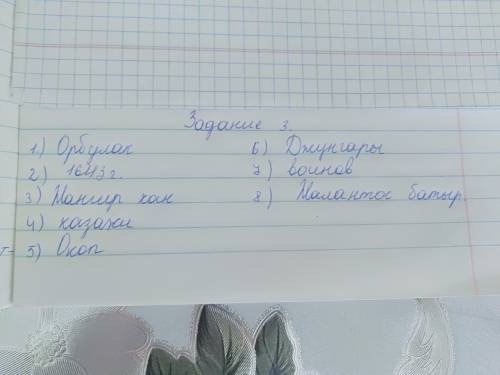 Задание 3.
1.) Орбулак
2) 1643 г.
3) Жангир хан
4) казахи
5) Окоп
6) Джунгары
7) воинов
8) Жалантос батыр.